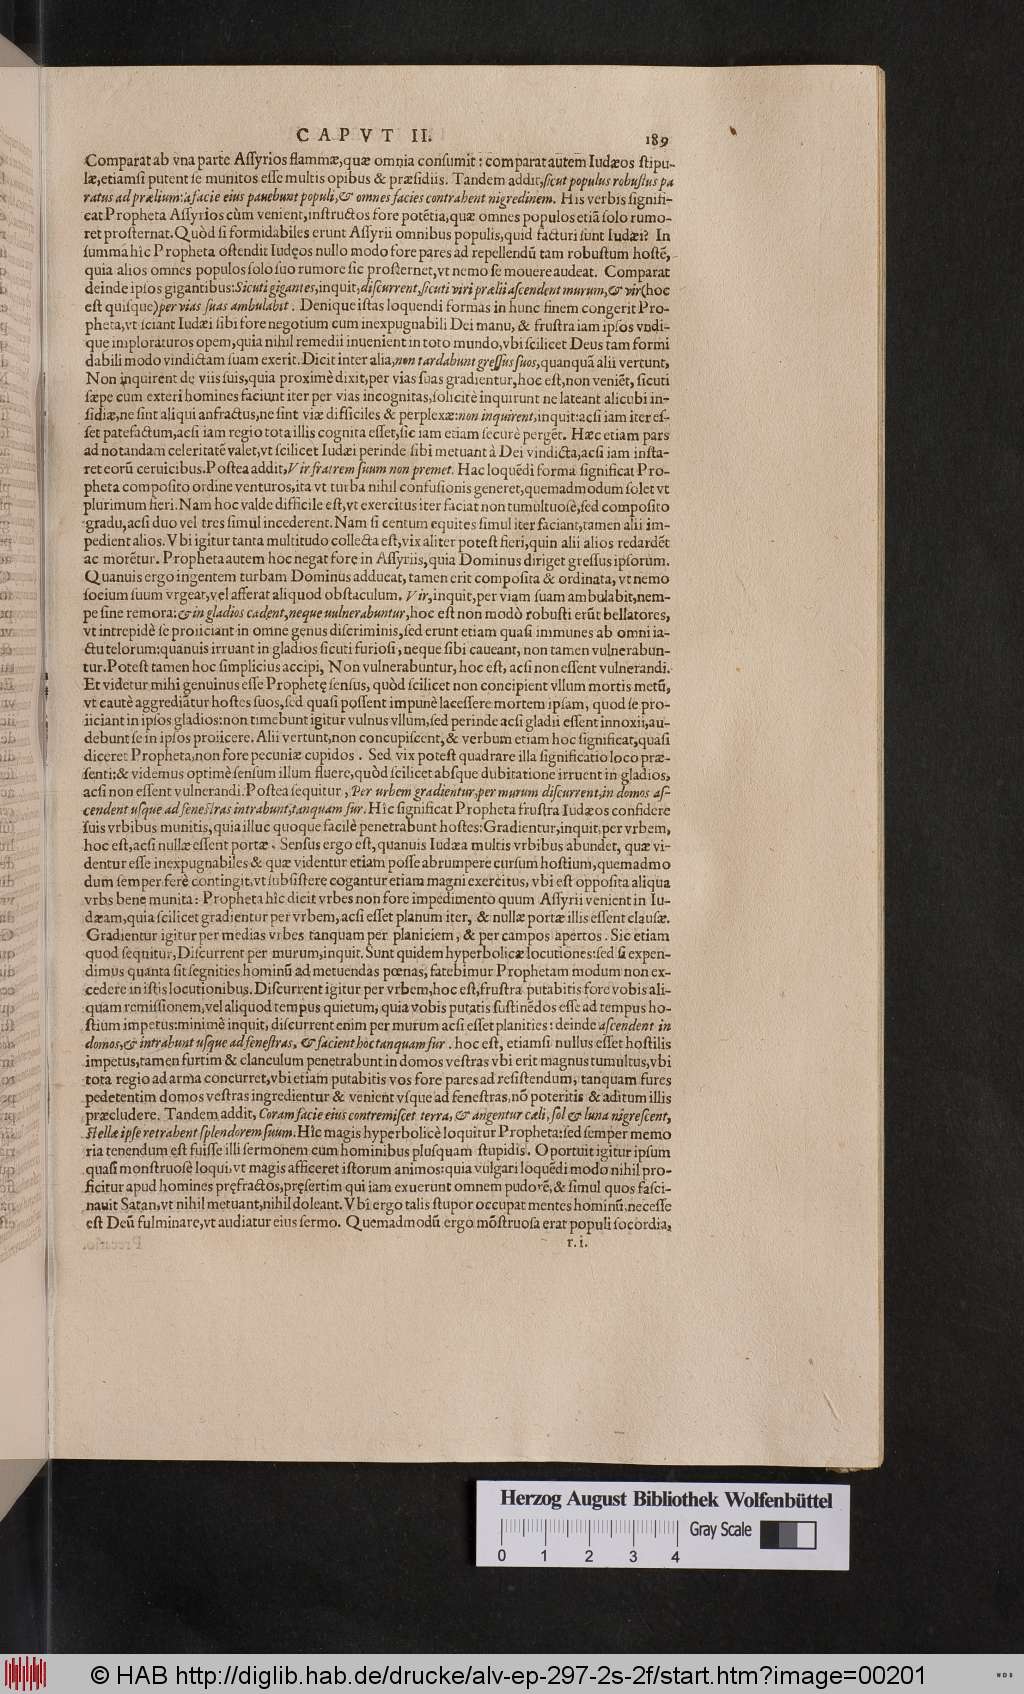 CAPVT II.
189
Comparat ab vna parte Aſſyrios flammæ,quæ omnia conſumit : comparat autem Iudæos ſtipu-
læ,etiamſi putent ſe munitos eſſe multis opibus & præſidiis. Tandem addit,ſicut populus robuſtus pa
ratus ad prælium:à facie eius pauebunt populi,& omnes facies contrahent nigredinem. His verbis ſignifi-
cat Propheta Aſſyrios cùm venient,inſtructos fore potẽtia,quæ omnes populos etiã ſolo rumo-
ret proſternat. Quòd ſi formidabiles erunt Aſſyrii omnibus populis,quid facturi ſunt Iudæi? In
ſumma hîc Propheta oſtendit Iudęos nullo modo fore pares ad repellendũ tam robuſtum hoſtẽ,
quia alios omnes populos ſolo ſuo rumore ſic proſternet,vt nemo ſe mouere audeat. Comparat
deinde ipſos gigantibus:Sicuti gigantes,inquit,diſcurrent,ſicuti viri prælii aſcendent murum,& vir(hoc
eſt quiſque)per vias ſuas ambulabit . Denique iſtas loquendi formas in hunc finem congerit Pro-
pheta,vt ſciant Iudæi ſibi fore negotium cum inexpugnabili Dei manu, & fruſtra iam ipſos vndi-
que imploraturos opem,quia nihil remedii inuenient in toto mundo,vbi ſcilicet Deus tam formi
dabili modo vindictam ſuam exerit. Dicit inter alia,non tardabunt greſſus ſuos,quanquã alii vertunt,
Non inquirent de viis ſuis,quia proximè dixit,per vias ſuas gradientur,hoc eſt,non veniẽt, ſicuti
ſæpe cùm exteri homines faciunt iter per vias incognitas,ſolicitè inquirunt ne lateant alicubi in-
ſidiæ,ne ſint aliqui anfractus,ne ſint viæ difficiles & perplexæ:non inquirent,inquit:acſi iam iter eſ-
ſet patefactum,acſi iam regio tota illis cognita eſſet,ſic iam etiam ſecurè pergẽt. Hæc etiam pars
ad notandam celeritatẽ valet,vt ſcilicet Iudæi perinde ſibi metuant à Dei vindicta,acſi iam inſta-
ret eorũ ceruicibus.Poſtea addit,Vir fratrem ſuum non premet. Hac loquẽdi forma ſignificat Pro-
pheta compoſito ordine venturos,ita vt turba nihil confuſionis generet,quemadmodum ſolet vt
plurimum fieri.Nam hoc valde difficile eſt,vt exercitus iter faciat non tumultuoſè,ſed compoſito
gradu,acſi duo vel tres ſimul incederent. Nam ſi centum equites ſimul iter faciant,tamen alii im-
pedient alios. Vbi igitur tanta multitudo collecta eſt,vix aliter poteſt fieri,quin alii alios redardẽt
ac morẽtur. Propheta autem hoc negat fore in Aſſyriis,quia Dominus diriget greſſus ipſorum.
Quanuis ergo ingentem turbam Dominus adducat,tamen erit compoſita & ordinata, vt nemo
ſocium ſuum vrgeat,vel afferat aliquod obſtaculum. Vir,inquit,per viam ſuam ambulabit,nem-
pe ſine remora:& in gladios cadent,neque uulnerabuntur,hoc eſt non modò robuſti erũt bellatores,
vt intrepidè ſe proiiciant in omne genus diſcriminis,ſed erunt etiam quaſi immunes ab omni ia-
ctu telorum:quanuis irruant in gladios ſicuti furioſi, neque ſibi caueant, non tamen vulnerabun-
tur.Poteſt tamen hoc ſimplicius accipi, Non vulnerabuntur, hoc eſt, acſi non eſſent vulnerandi.
Et videtur mihi genuinus eſſe Prophetę ſenſus, quòd ſcilicet non concipient vllum mortis metũ,
vt cautè aggrediãtur hoſtes ſuos,ſed quaſi poſſent impunè laceſſere mortem ipſam, quod ſe pro-
iiciant in ipſos gladios:non timebunt igitur vulnus vllum,ſed perinde acſi gladii eſſent innoxii,au-
debunt ſe in ipſos proiicere. Alii vertunt,non concupiſcent,& verbum etiam hoc ſignificat,quaſi
diceret Propheta,non fore pecuniæ cupidos . Sed vix poteſt quadrare illa ſignificatio loco præ-
ſenti:& videmus optimè ſenſum illum fluere,quòd ſcilicet abſque dubitatione irruent in gladios,
acſi non eſſent vulnerandi. Poſtea ſequitur , Per urbem gradientur,per murum diſcurrent,in domos aſ-
cendent uſque ad feneſtras intrabunt,tanquam fur. Hîc ſignificat Propheta fruſtra Iudæos confidere
ſuis vrbibus munitis,quia illuc quoque facilè penetrabunt hoſtes:Gradientur,inquit,per vrbem,
hoc eſt,acſi nullæ eſſent portæ . Senſus ergo eſt,quanuis Iudæa multis vrbibus abundet, quæ vi-
dentur eſſe inexpugnabiles & quæ videntur etiam poſſe abrumpere curſum hoſtium,quemadmo
dum ſemper ferè contingit,vt ſubſiſtere cogantur etiam magni exercitus, vbi eſt oppoſita aliqua
vrbs bene munita: Propheta hîc dicit vrbes non fore impedimento quum Aſſyrii venient in Iu-
dæam,quia ſcilicet gradientur per vrbem,acſi eſſet planum iter, & nullæ portæ illis eſſent clauſæ.
Gradientur igitur per medias vrbes tanquam per planiciem, & per campos apertos. Sic etiam
quod ſequitur,Diſcurrent per murum,inquit. Sunt quidem hyperbolicæ locutiones:ſed ſi expen-
dimus quanta ſit ſegnities hominũ ad metuendas pœnas, fatebimur Prophetam modum non ex-
cedere in iſtis locutionibus.Diſcurrent igitur per vrbem,hoc eſt,fruſtra putabitis fore vobis ali-
quam remiſſionem,vel aliquod tempus quietum, quia vobis putatis ſuſtinẽdos eſſe ad tempus ho-
ſtium impetus:minimè inquit, diſcurrent enim per murum acſi eſſet planities : deinde aſcendent in
domos,& intrabunt uſque ad feneſtras, & facient hoc tanquam fur . hoc eſt, etiamſi nullus eſſet hoſtilis
impetus,tamen furtim & clanculum penetrabunt in domos veſtras vbi erit magnus tumultus,vbi
tota regio ad arma concurret,vbi etiam putabitis vos fore pares ad reſiſtendum, tanquam fures
pedetentim domos veſtras ingredientur & venient vſque ad feneſtras,nõ poteritis & aditum illis
præcludere. Tandem addit, Coram facie eius contremiſcet terra,& angentur cæli,ſol & luna nigreſcent,
ſtellæ ipſe retrahent ſplendorem ſuum. Hîc magis hyperbolicè loquitur Propheta:ſed ſemper memo
ria tenendum eſt fuiſſe illi ſermonem cum hominibus pluſquam ſtupidis. Oportuit igitur ipſum
quaſi monſtruosè loqui,vt magis afficeret iſtorum animos:quia vulgari loquẽdi modo nihil pro-
ficitur apud homines pręfractos,pręſertim qui iam exuerunt omnem pudorẽ,& ſimul quos faſci-
nauit Satan,vt nihil metuant,nihil doleant. Vbi ergo talis ſtupor occupat mentes hominũ,neceſſe
eſt Deũ fulminare,vt audiatur eius ſermo. Quemadmodũ ergo mõſtruoſa erat populi ſocordia,
r. i.
Herzog August Bibliothek Wolfenbüttel
Gray Scale
0 1 2 3 4
© HAB http://diglib.hab.de/drucke/alv-ep-297-2s-2f/start.htm?image=00201